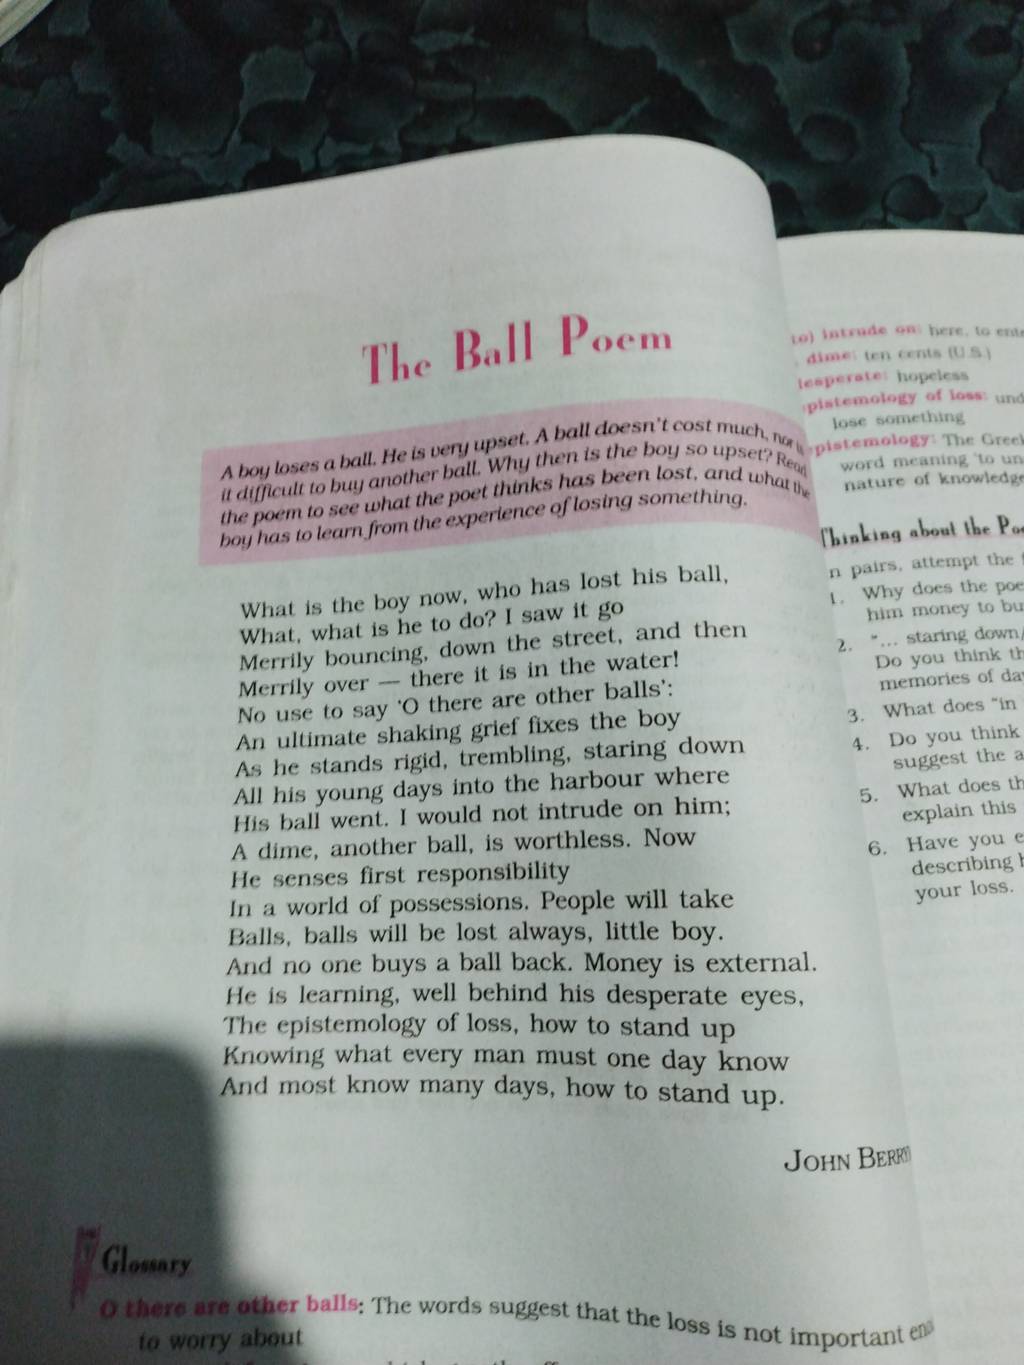 The Ball Poem
A boy loses a ball. He is very upset. A ball doesn't cost much, nor is
it difficult to buy another ball. Why then is the boy so upset? Read
the poem to see what the poet thinks has been lost, and what the
boy has to learn from the experience of losing something.
What is the boy now, who has lost his ball,
What, what is he to do? I saw it go
Merrily bouncing, down the street, and then
Merrily over — there it is in the water!
No use to say 'O there are other balls':
An ultimate shaking grief fixes the boy
As he stands rigid, trembling, staring down
All his young days into the harbour where
His ball went. I would not intrude on him;
A dime, another ball, is worthless. Now
He senses first responsibility
In a world of possessions. People will take
Balls, balls will be lost always, little boy.
And no one buys a ball back. Money is external.
He is learning, well behind his desperate eyes,
The epistemology of loss, how to stand up
Knowing what every man must one day know
And most know many days, how to stand up.
JOHN
Glossary
O there are other balls: The words suggest that the loss is not important
to worry about
intrude on: here, to
dime: ten cents (U.S.)
hopeless
of loss:
lose something
The
word meaning 'to
nature of knowledge
Thinking about the
pairs, attempt the
1. Why does the
him money to
2. "... staring down/
Do you think
memories of
3. What does "in
4. Do you think
suggest the
5. What does
explain this
6. Have you
describing
your loss.